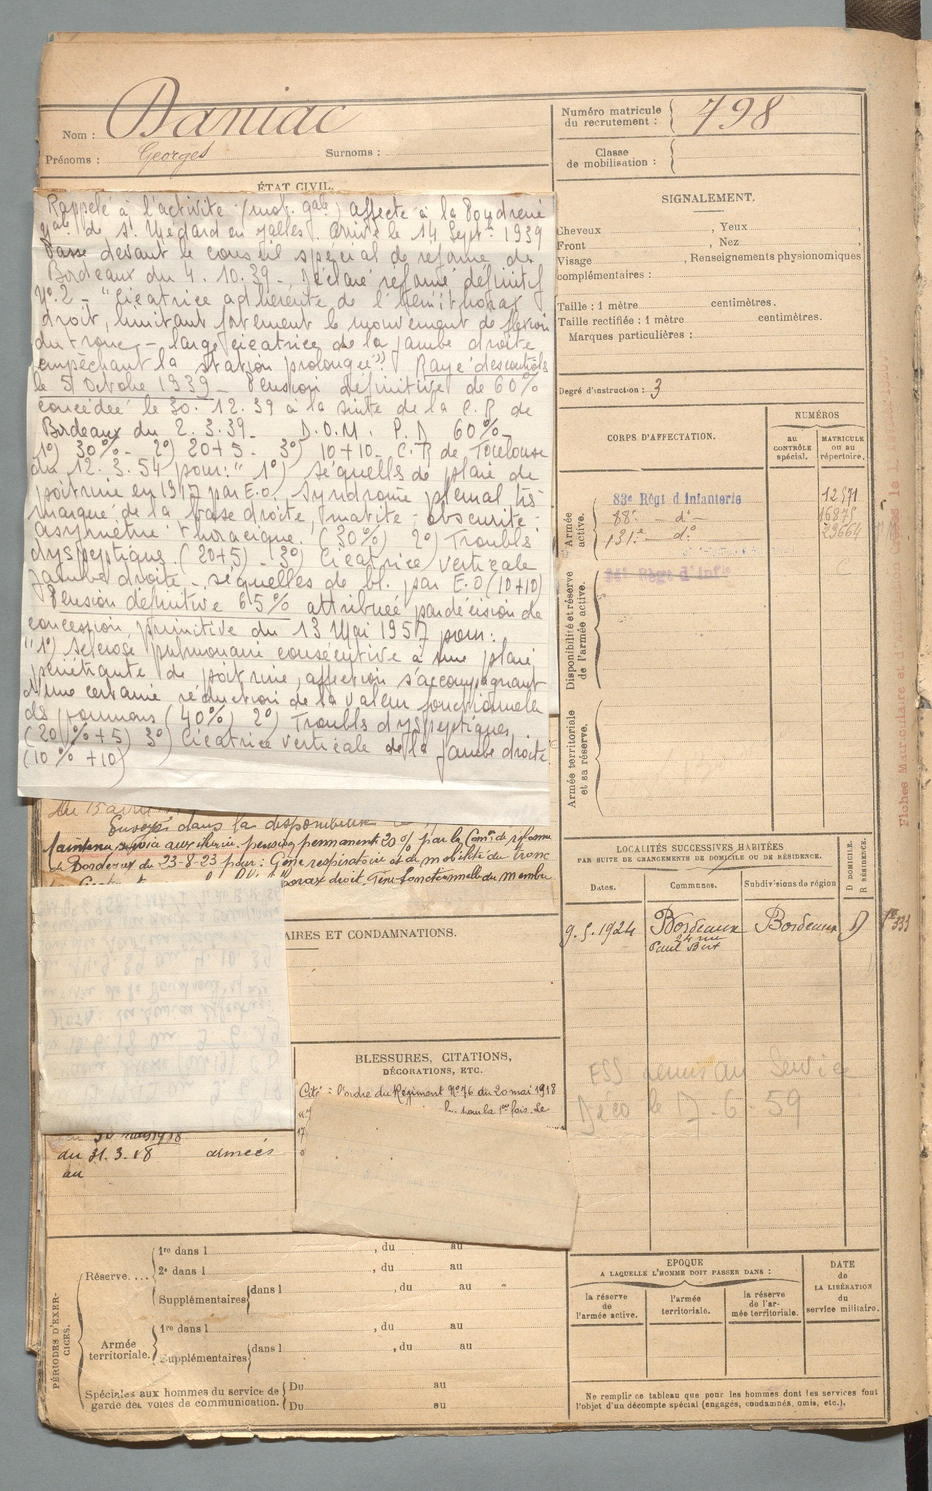 Nom : Daniac
Prénoms : Georges Surnoms :
Numéro matricule
du recrutement : 798
Classe
de mobilisation :
ÉTAT CIVIL.
Rappelé à l'activité (mob. gale) affecté à la Poudrerie
Nale de St Médard en Jalles. Arrivé le 14 Sept. 1939
Passé devant le conseil spécial de réforme de
Bordeaux du 4.10.39, déclaré réformé définitif
No 2 - "Cicatrice adhérente de l'hémithorax
droit, limitant fortement le mouvement de flexion
du tronc - large cicatrice de la jambe droite
empêchant la station prolongée") Rayé des contrôles
le 5 Octobre 1939 - Pension définitive de 60%
concédée le 30.12.39 à la suite de la C.R de
Bordeaux du 2.3.39 - D.O.M. P.D 60% -
1°) 30% - 2°) 20+5 - 3°) 10+10 - C.R de Toulouse
du 12.3.54 pour: "1°) séquelles de plaie de
poitrine en 1917 par E.O. Syndrome pleural très
marqué de la base droite, matité - obscurité -
asymétrie thoracique. (30%) 2°) Troubles
dyspeptiques. (20+5) - 3°) Cicatrice verticale
jambe droite - séquelles de bl. par E.O (10+10)
Pension définitive 65% attribuée par décision de
concession primitive du 13 Mai 1957 pour:
"1°) Sclérose pulmonaire consécutive à une plaie
pénétrante de poitrine, affection s'accompagnant
d'une certaine réduction de la valeur fonctionnelle
des poumons (40%) 2°) Troubles dyspeptiques
(20% +5) 3°) Cicatrice verticale de la jambe droite.
(10% +10)
Envoyé dans la disponibilité
Maintenu service auxiliaire. pension permanent 20% par la Comon de réforme
de Bordeaux du 23-8-23 pour : Gêne respiratoire et de mobilité du tronc
thorax droit, Gêne fonctionnelle du membre
AIRES ET CONDAMNATIONS.
BLESSURES, CITATIONS,
DÉCORATIONS, ETC.
Cité à l'ordre du Régiment No 76 du 20 mai 1918
du 31.3.18 armées
au
SIGNALEMENT.
Cheveux , Yeux ,
Front , Nez ,
Visage , Renseignements physionomiques
complémentaires :
Taille : 1 mètre centimètres.
Taille rectifiée : 1 mètre centimètres.
Marques particulières :
Degré d'instruction : 3
CORPS D'AFFECTATION.
NUMÉROS
au
CONTRÔLE
spécial.
MATRICULE
OU AU
répertoire.
Armée
active.
83e Régt d'Infanterie 12571
88e - do - 16875
131e - do 23664
Disponibilité et réserve
de l'armée active.
Armée territoriale
et sa réserve.
LOCALITÉS SUCCESSIVES HABITÉES
PAR SUITE DE CHANGEMENTS DE DOMICILE OU DE RÉSIDENCE.
D DOMICILE.
R RÉSIDENCE.
Dates. Communes. Subdivisions de région
9.5.1924 Bordeaux Bordeaux D
24 rue
Paul Bert
ESS remis au Service
Déco le 17-6-59
PÉRIODES D'EXERCICES.
Réserve....
1re dans l , du au
2e dans l , du au
Supplémentaires dans l , du au
Armée
territoriale.
1re dans l , du au
Supplémentaires dans l , du au
Spéciales aux hommes du service de
garde des voies de communication.
Du au
Du au
EPOQUE
A LAQUELLE L'HOMME DOIT PASSER DANS :
la réserve
de
l'armée active.
l'armée
territoriale.
la réserve
de l'ar-
mée territoriale.
DATE
de
LA LIBÉRATION
du
service militaire.
Ne remplir ce tableau que pour les hommes dont les services font
l'objet d'un décompte spécial (engagés, condamnés, omis, etc.).